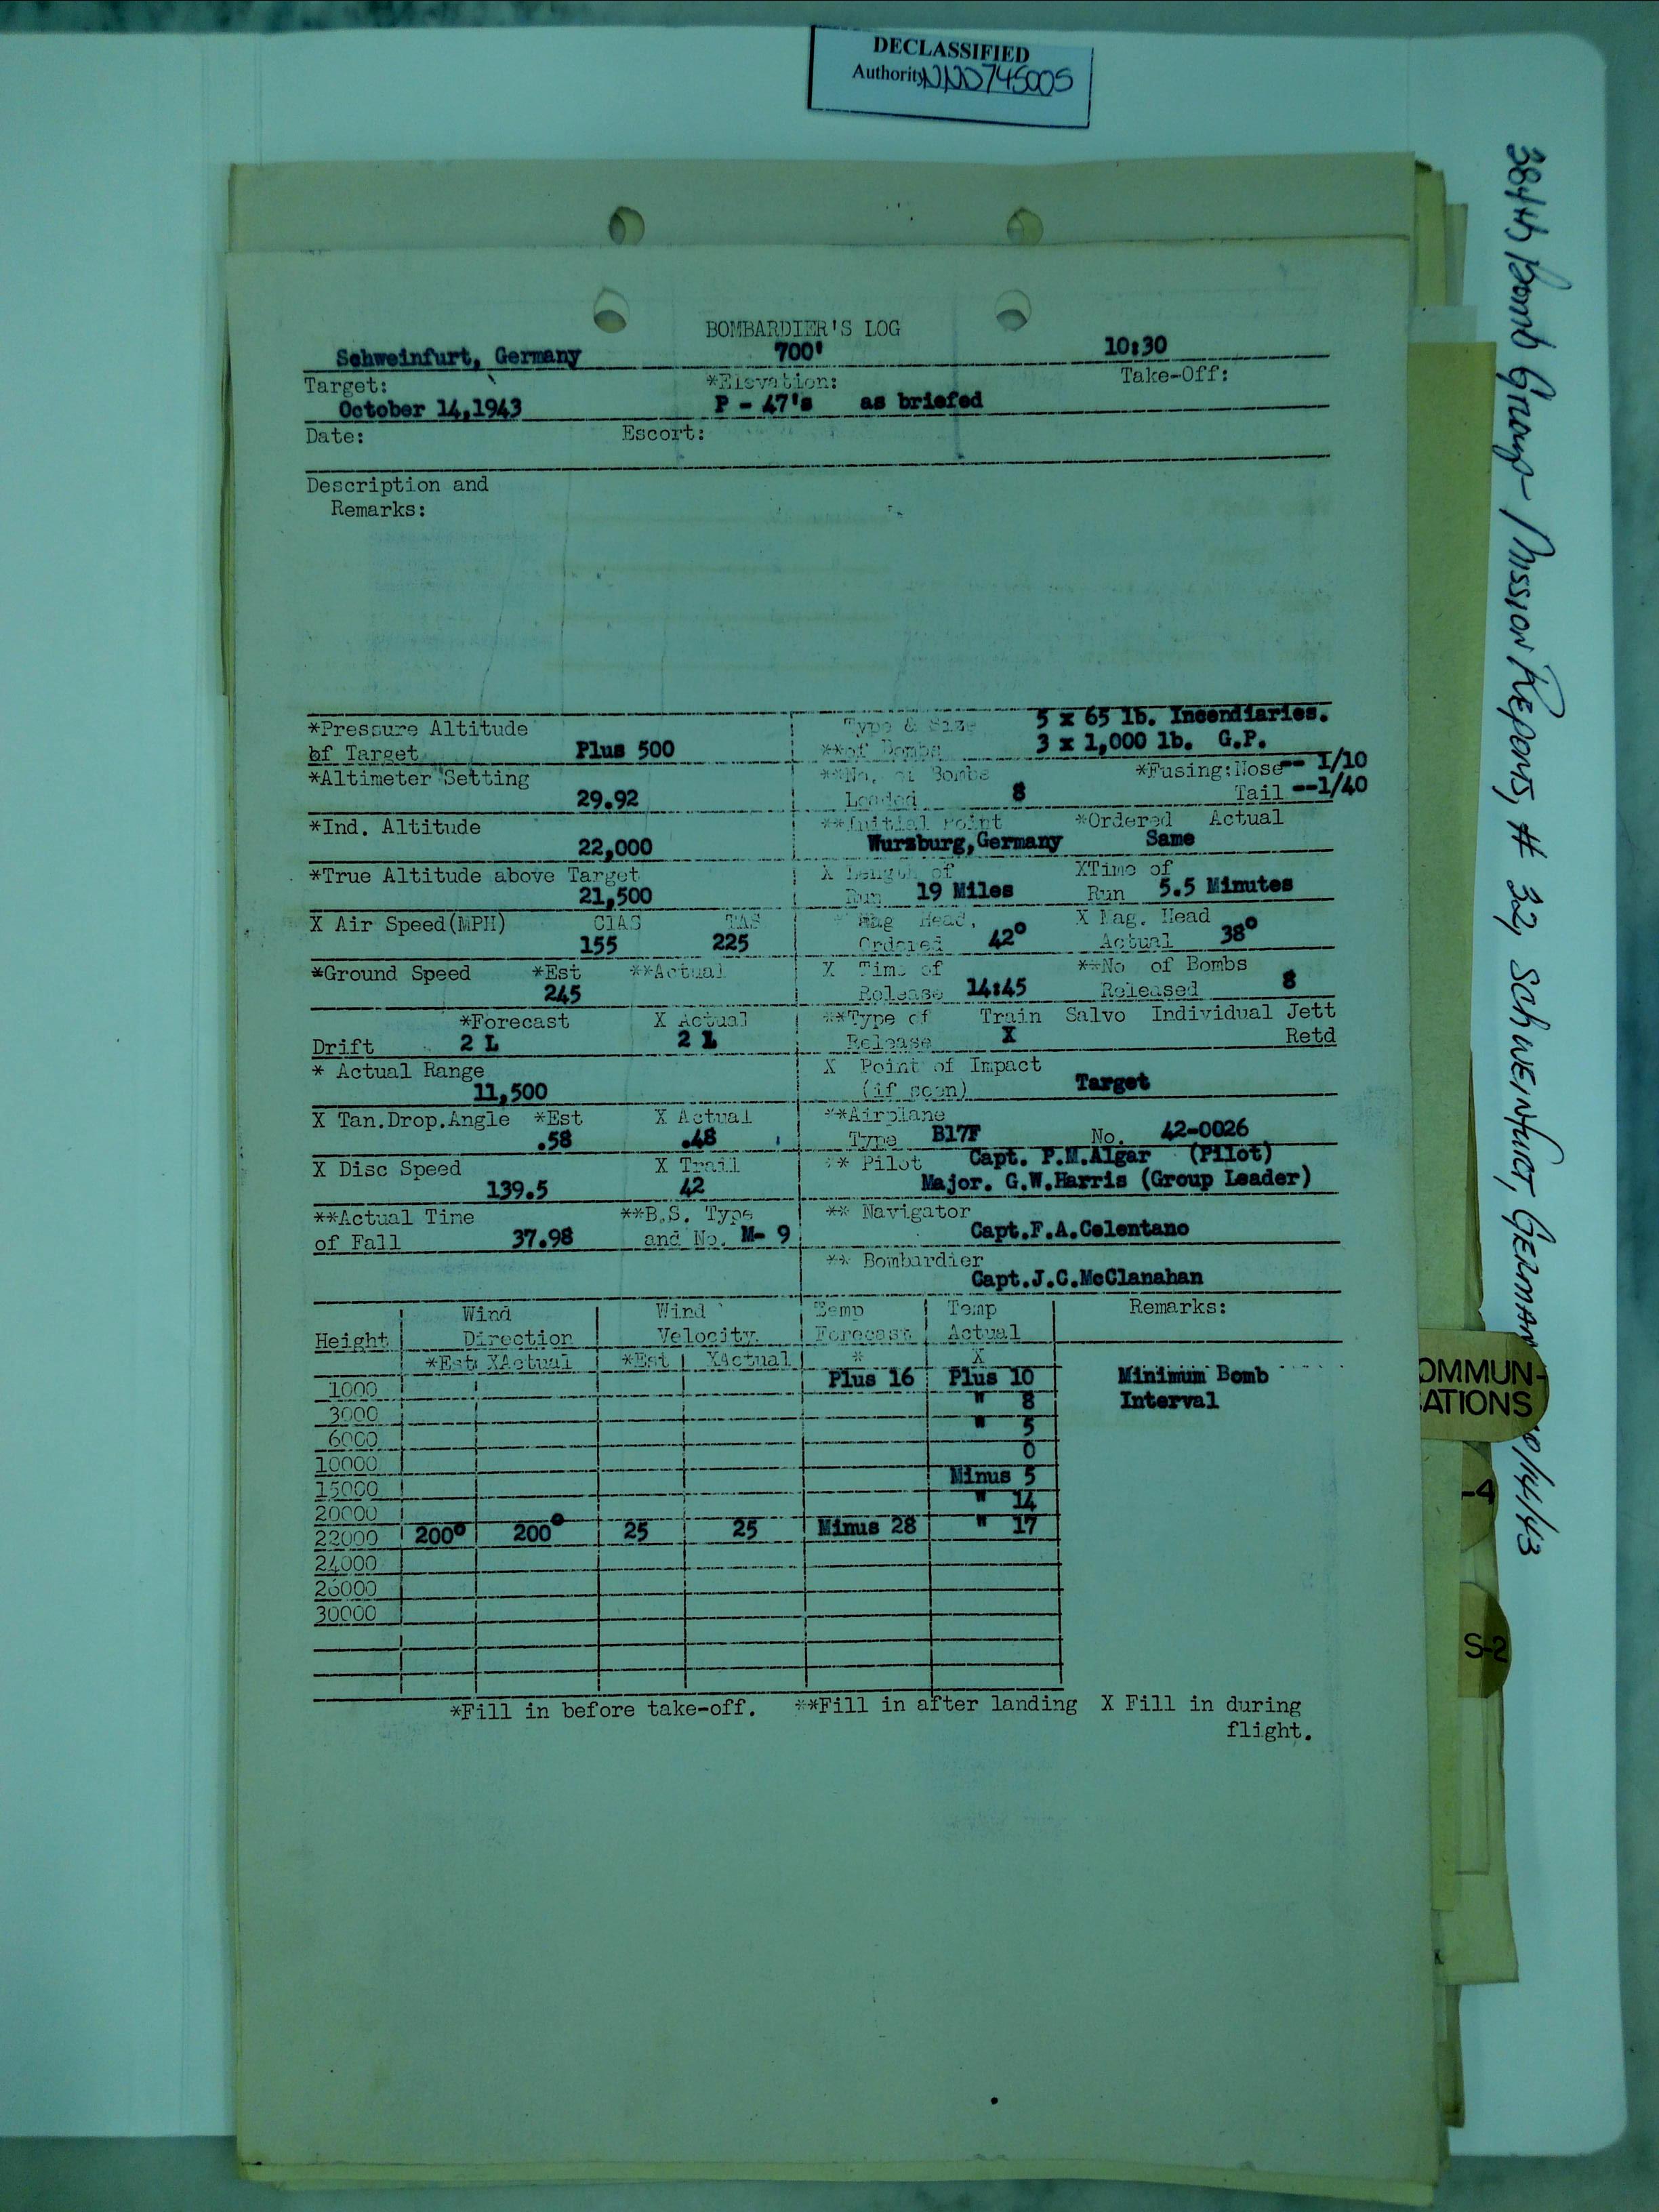 DECLASSIFIED
Authority NND745005
384th Bomb Group - Mission Reports, # 32, Schweinfurt, Germany 10/14/43
BOMBARDIER'S LOG
Schweinfurt, Germany 700' 10:30
Target: *Elevation: Take-Off:
October 14,1943 P - 47's as briefed
Date: Escort:
Description and
Remarks:
*Pressure Altitude Type & Size 5 x 65 lb. Incendiaries.
of Target Plus 500 **of Bombs 3 x 1,000 lb. G.P.
*Altimeter Setting **No. of Bombs *Fusing:Nose-- 1/10
29.92 Loaded 8 Tail --1/40
*Ind. Altitude **Initial Point *Ordered Actual
22,000 Wurzburg,Germany Same
*True Altitude above Target X Length of XTime of
21,500 Run 19 Miles Run 5.5 Minutes
X Air Speed(MPH) CIAS TAS * Mag Head. X Mag. Head
155 225 Ordered 42° Actual 38°
*Ground Speed *Est **Actual X Time of **No of Bombs
245 Release 14:45 Released 8
*Forecast X Actual **Type of Train Salvo Individual Jett
Drift 2 L 2 L Release X Retd
* Actual Range X Point of Impact
11,500 (if seen) Target
X Tan.Drop.Angle *Est X Actual **Airplane
.58 .48 Type B17F No. 42-0026
X Disc Speed X Trail ** Pilot Capt. P.M.Algar (Pilot)
139.5 42 Major. G.W.Harris (Group Leader)
**Actual Time **B.S. Type ** Navigator
of Fall 37.98 and No. M- 9 Capt.F.A.Celentano
** Bombardier
Capt.J.C.McClanahan
Wind Wind Temp Temp Remarks:
Height Direction Velocity. Forecast Actual
*Est XActual *Est XActual * X
1000 Plus 16 Plus 10 Minimum Bomb
3000 " 8 Interval
6000 " 5
10000 0
15000 Minus 5
20000 " 14
22000 200° 200° 25 25 Minus 28 " 17
24000
26000
30000
*Fill in before take-off. **Fill in after landing X Fill in during
flight.
OMMUN-
CATIONS
-4
S-2